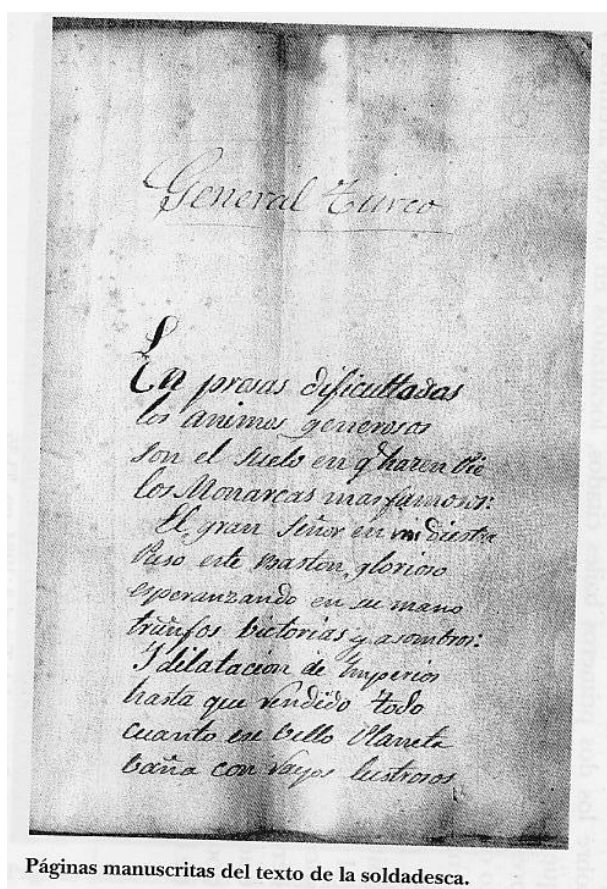 General Turco
En presas dificultadas
los animos generosos
son el suelo en q hazen Pie
los Monarcas mas famosos:
El gran Señor en mi diestra
Puso este Baston glorioso
esperanzando en su mano
triunfos victorias y asombros:
I dilatacion de Imperios
hasta que rendido todo
cuanto ese bello Planeta
baña con rayos lustrosos
Páginas manuscritas del texto de la soldadesca.